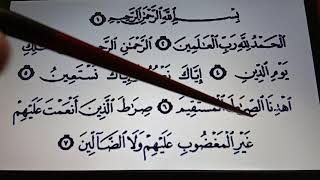 بِسْمِ اللَّهِ الرَّحْمَٰنِ الرَّحِيمِ ١
الْحَمْدُ لِلَّهِ رَبِّ الْعَالَمِينَ ٢ الرَّحْمَٰنِ الرَّحِيمِ
يَوْمِ الدِّينِ ٤ إِيَّاكَ نَعْبُدُ وَإِيَّاكَ نَسْتَعِينُ ٥
اهْدِنَا الصِّرَاطَ الْمُسْتَقِيمَ ٦ صِرَاطَ الَّذِينَ أَنْعَمْتَ عَلَيْهِمْ
غَيْرِ الْمَغْضُوبِ عَلَيْهِمْ وَلَا الضَّالِّينَ ٧